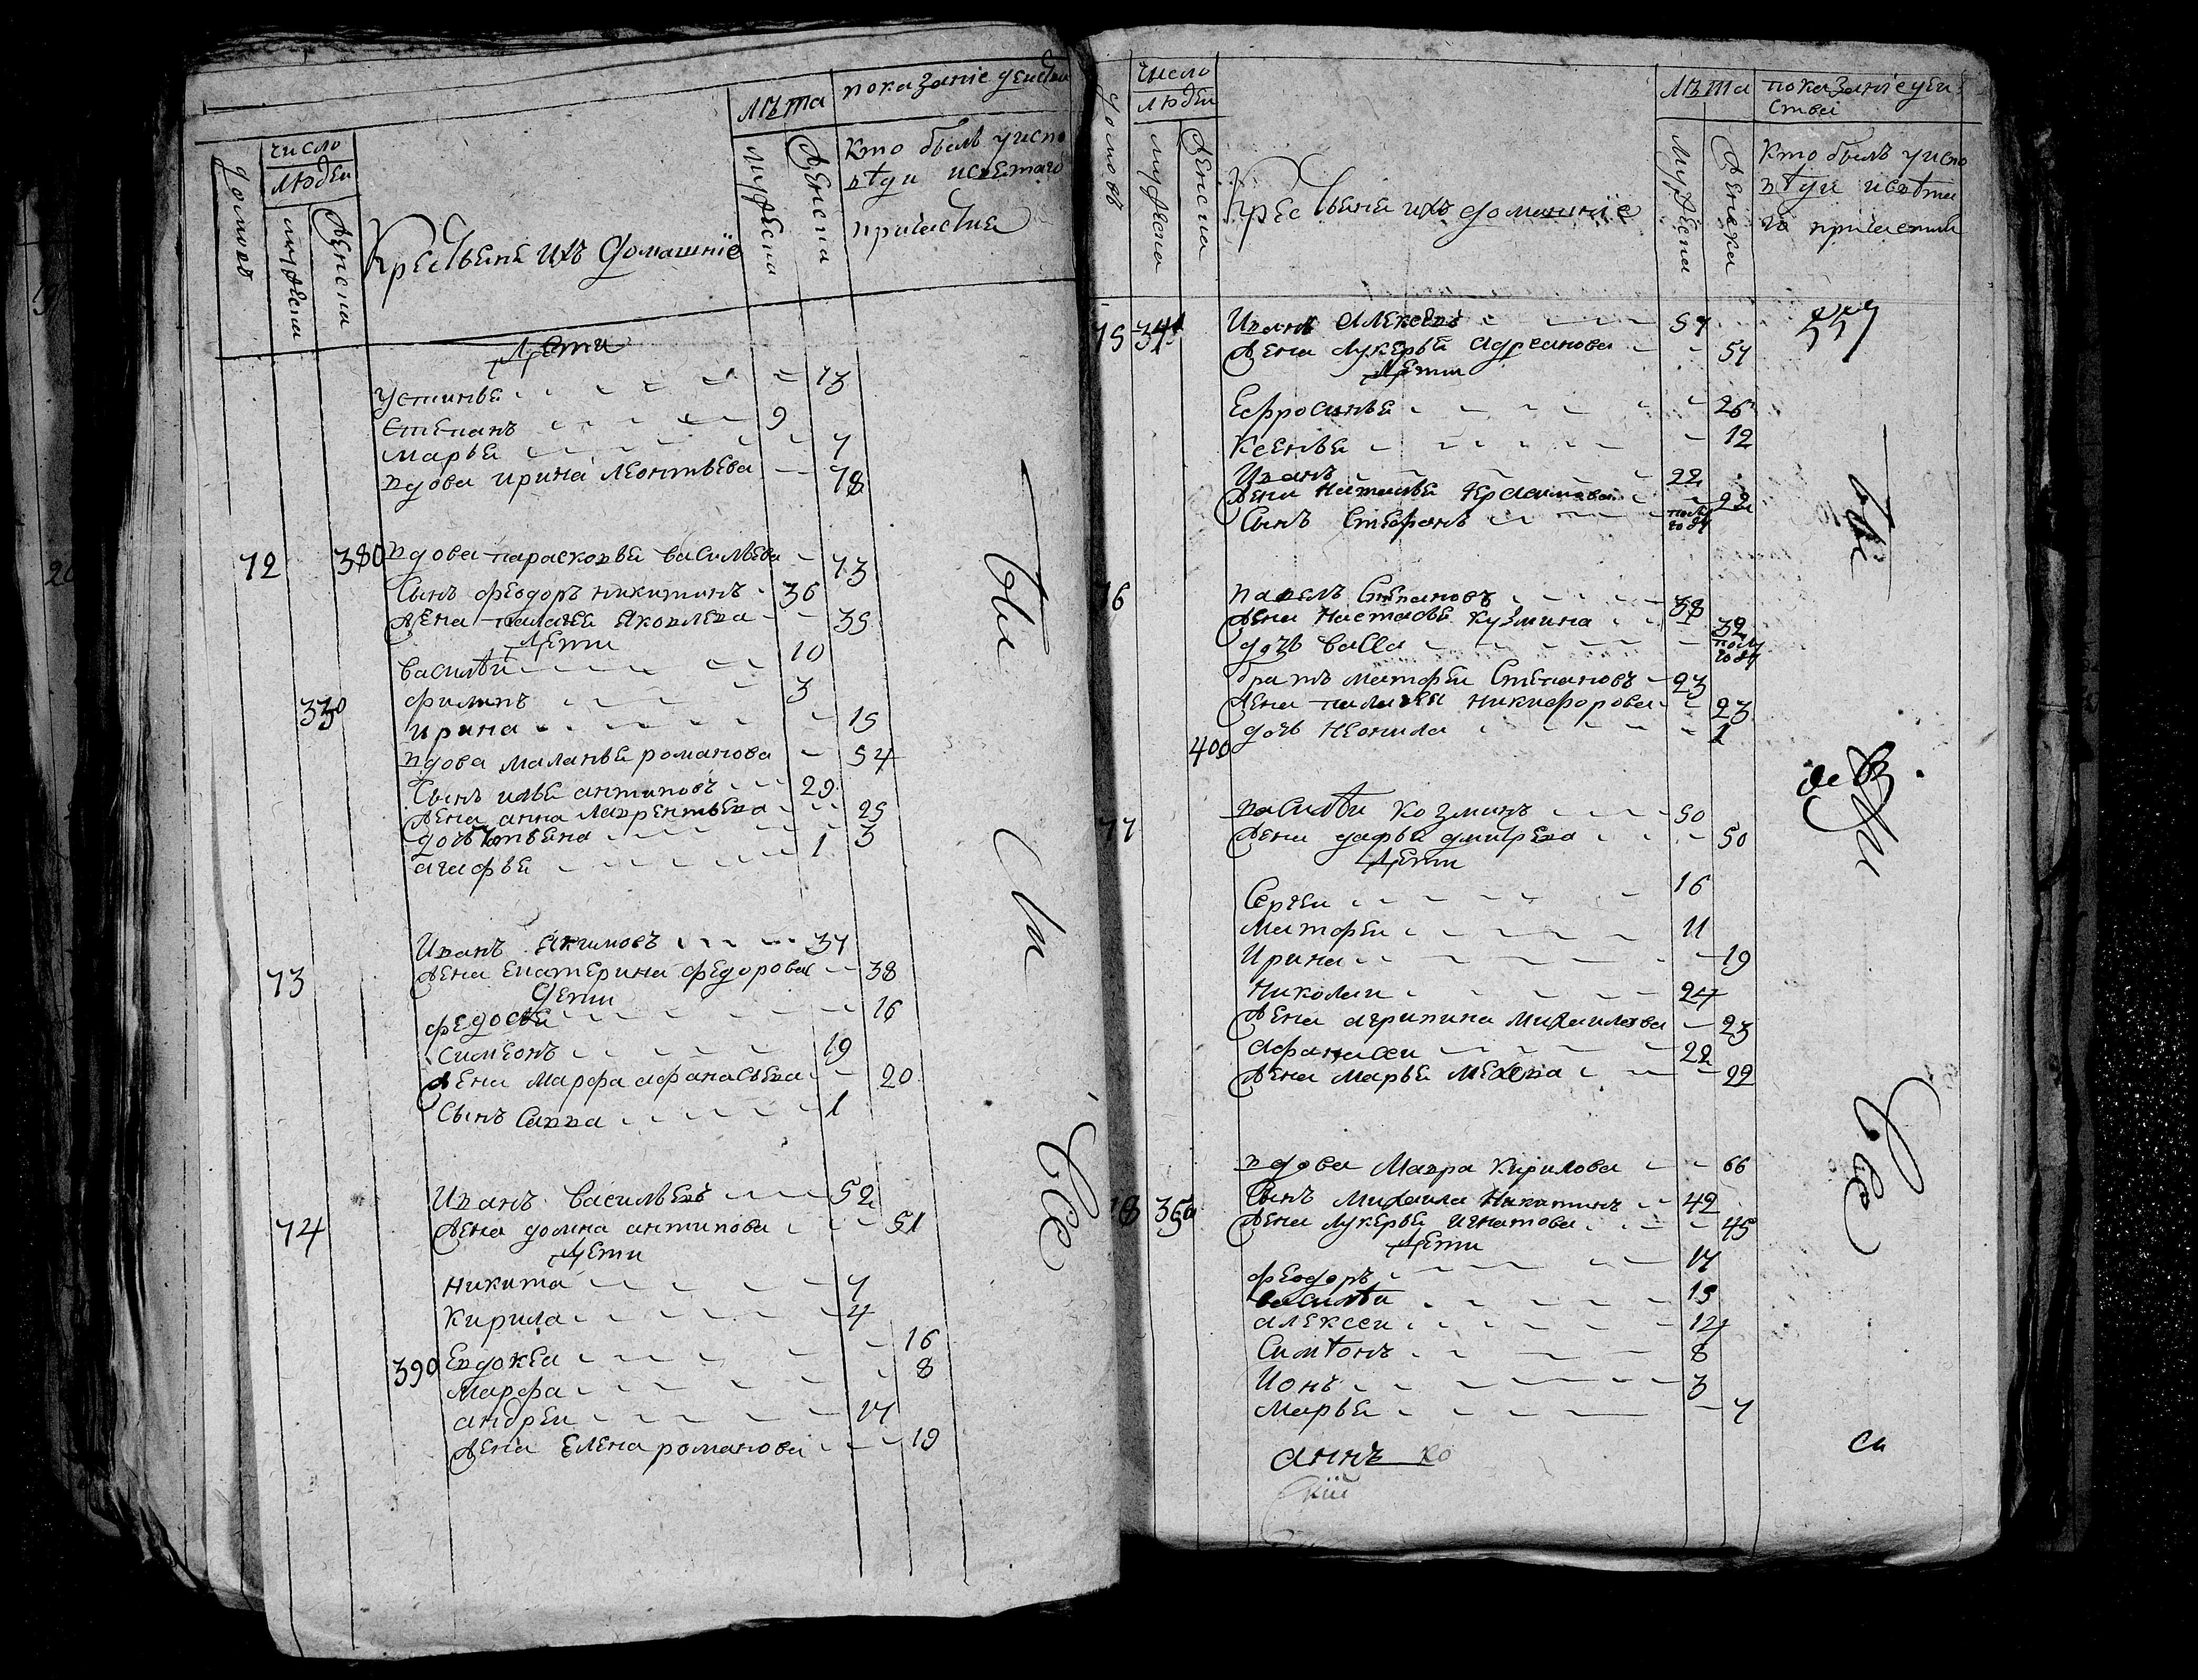 домовъ
число
людеи
мужеска
женска
Крестьяне ихъ домашніе
лѣта
мужеска
женска
показаніе действ
Кто былъ уиспо
вѣди исветаго
причастия
Дети
устинья 13
Степанъ 9
марья 7
вдова ирина леонтьева 78
72 380 вдова парасковья васильева 73
Сынъ феодоръ никитинъ 36
жена пелагея яковлева 35
Дети
василѣи 10
филипъ 3
330 ирина 15
вдова маланья романова 54
Сынъ илья антиповъ 29
жена анна лаврентьева 25
дочь устьена 3
агафья 1
73 Иванъ якимовъ 37
жена екатерина федорова 38
Дети
федосья 16
симеонъ 19
жена марфа афанасьева 20
Сынъ Савва 1
74 Иванъ васильевъ 52
жена домна антипова 51
Дети
никита 7
кирила 4
390 Евдокея 16
марфа 8
андреи 17
жена Елена романова 19
были
и
все
домовъ
число
людеи
мужеска
женска
Крестьяне ихъ домашніе
лѣта
мужеска
женска
показание деи
ствеи
Кто былъ уиспо
вѣди исвѣта
го причастия
75 341 Иванъ алексѣевъ 57
жена лукерья адреанова 57
Дети
Ефросинья 26
Ксенья 12
Иванъ 22
жена наталья герасимова 22
Сынъ Стефанъ полу году
76 павелъ Степановъ 38
жена настасья кузмина 32
дочь васса полу году
братъ матфеи Степановъ 23
жена пелагея никифорова 23
400 дочь неонила 1
77 василѣи козминъ 50
жена дарья дмитрева 50
Дети
Сергеи 16
матфеи 11
Ирина 19
николаи 24
жена агрипина михаилова 23
афанасеи 22
жена марья михева 22
вдова мавра кирилова 66
78 350 Сынъ михаила никитинъ 42
жена лукерья игнатова 45
Дети
феодоръ 17
василѣи 15
алексеи 12
Симѣонъ 8
Ионъ 3
марья 7
аннъ ко
скій
557
были
все
си